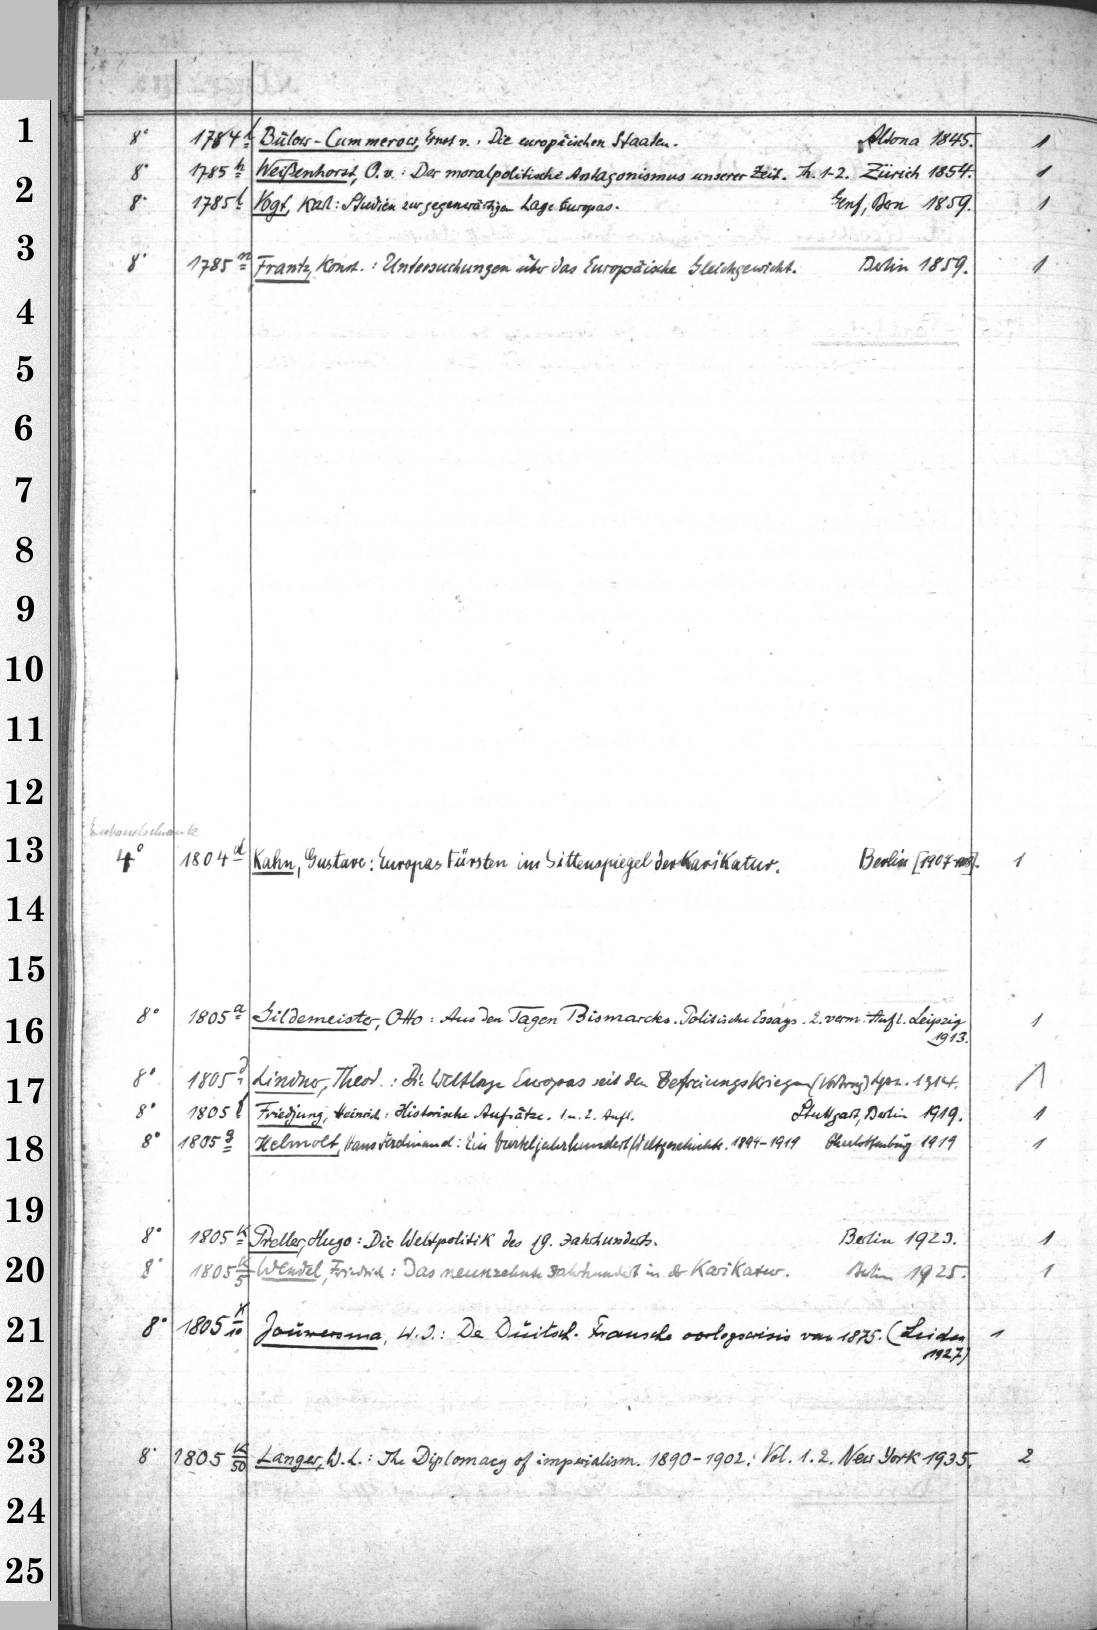 1
2
3
4
5
6
7
8
9
10
11
12
13
14
15
16
17
18
19
20
21
22
23
24
25
8° 1784 Bülow-Cummerow, Ernst v.: Die europäischen Staaten. Altona 1845. 1
8° 1785 h Weißenhorst, O. v.: Der moralpolitische Antagonismus unserer Zeit. Th. 1-2. Zürich 1854. 1
8° 1785 l Vogt, Karl: Studien zur gegenwärtigen Lage Europas. Genf, Bern 1859. 1
8° 1785 n Frantz, Konst.: Untersuchungen über das Europäische Gleichgewicht. Berlin 1859. 1
Einbandschranke
4° 1804 d Kahn, Gustave: Europas Fürsten im Sittenspiegel der Karikatur. Berlin [1907]. 1
8° 1805 a Gildemeister, Otto: Aus den Tagen Bismarcks. Politische Essays. 2. verm. Aufl. Leipzig 1
1913.
8° 1805 Lindner, Theod.: Die Weltlage Europas seit den Befreiungskriegen (Vortrag) Lpz. 1914. 1
8° 1805 f Friedjung, Heinrich: Historische Aufsätze. 1. u. 2. Aufl. Stuttgart, Berlin 1919. 1
8° 1805 g Helmolt, Hans Ferdinand: Ein Vierteljahrhundert Weltgeschichte. 1894-1919 Charlottenburg 1919 1
8° 1805 K Preller, Hugo: Die Weltpolitik des 19. Jahrhunderts. Berlin 1923. 1
8° 1805 K/5 Wendel, Friedrich: Das neunzehnte Jahrhundert in der Karikatur. Berlin 1925. 1
8° 1805 K/10 Jouwersma, W. J.: De Duitsch-Fransche oorlogscrisis van 1875. (Leiden 1
1927)
8° 1805 K/50 Langer, W. L.: The Diplomacy of imperialism. 1890-1902. Vol. 1. 2. New York 1935. 2